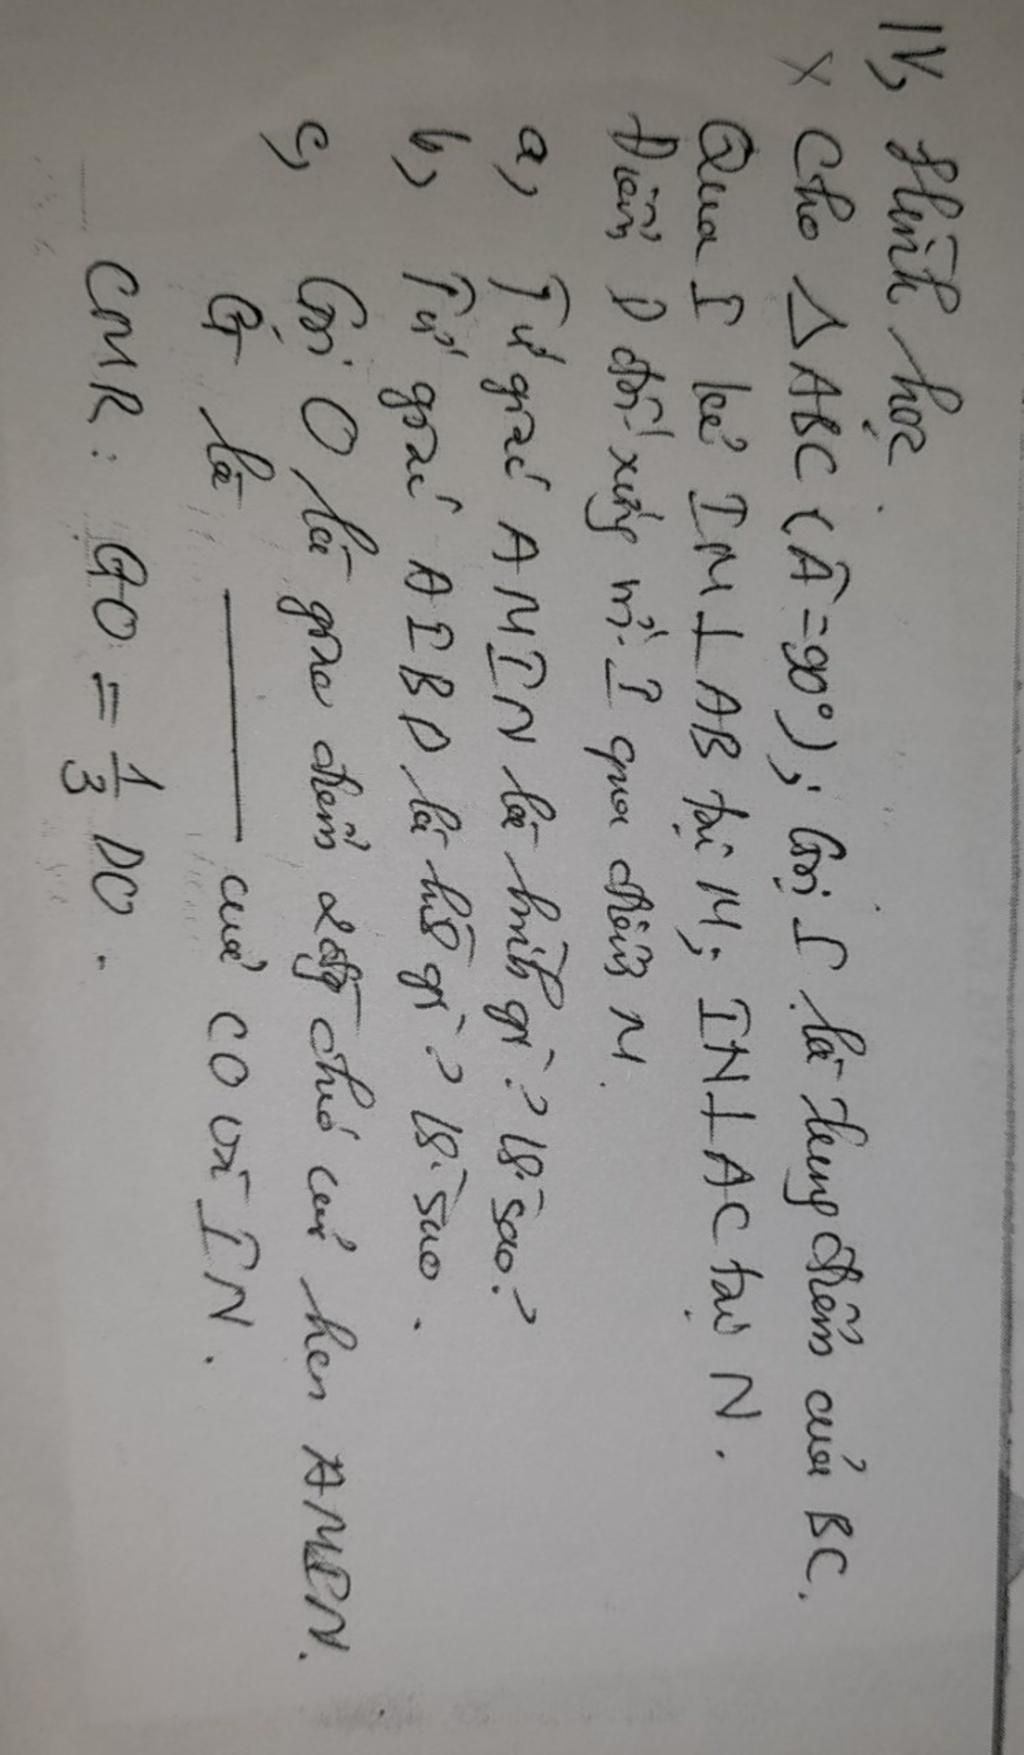 IV, Hình học.
x Cho △ABC (Â=90°); Gọi I là trung điểm của BC.
Qua I kẻ IM⊥AB tại M; IN⊥AC tại N.
Điểm D đối xứng với I qua điểm M.
a, Tứ giác AMIN là hình gì? Vì sao?
b, Tứ giác AIBD là hình gì? Vì sao.
c, Gọi O là giao điểm 2 đg chéo của hcn AMIN.
G là ——— của CO với IN.
CMR: GO = 1/3 DO.